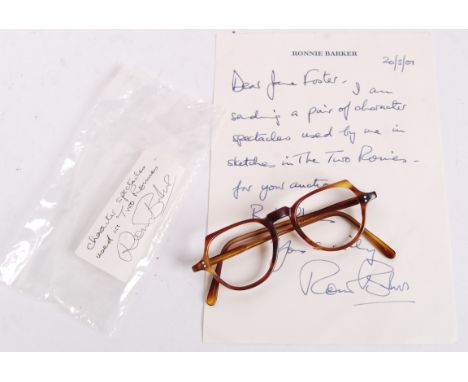 RONNIE BARKER
20/5/01
Dear Jane Foster - I am
sending a pair of character
spectacles used by me in
sketches in The Two Ronnies -
for your auction
B
Ronnie Barker
character spectacles
used in Two Ronnies
Ronnie Barker